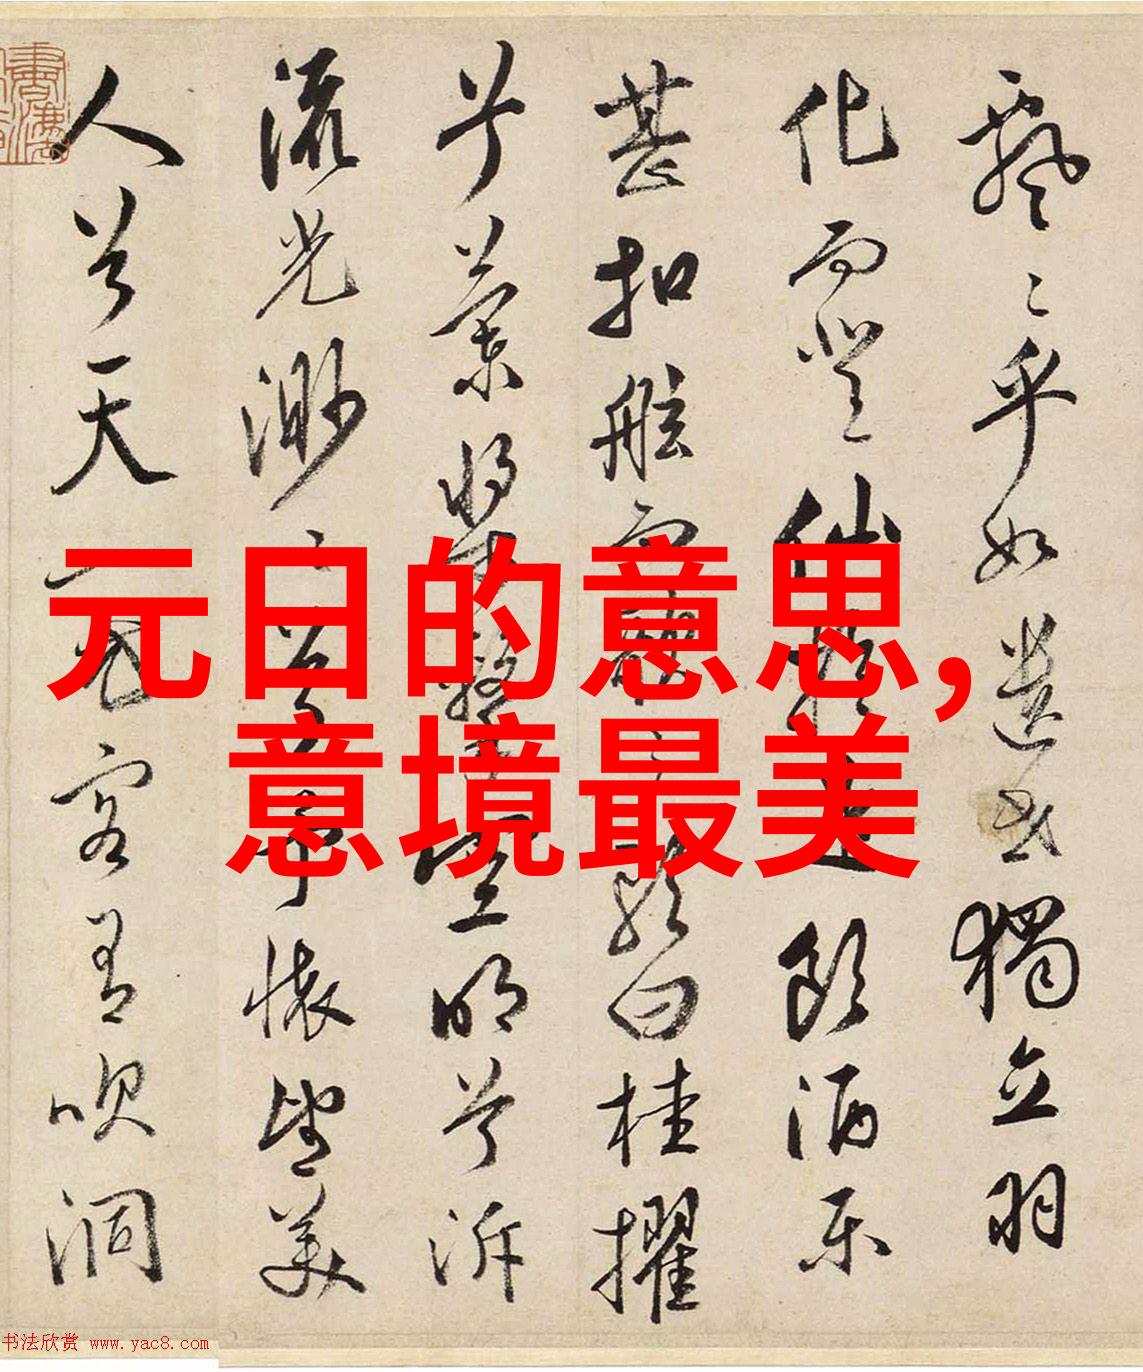 飄々乎如遺世獨立羽
化而登仙於是飲酒樂
甚扣舷而歌之歌曰桂擢
兮蘭槳擊空明兮泝
流光渺々兮予懷望美
人兮天一方客有吹洞
元日的意思,
意境最美
书法欣赏 www.yac8.com